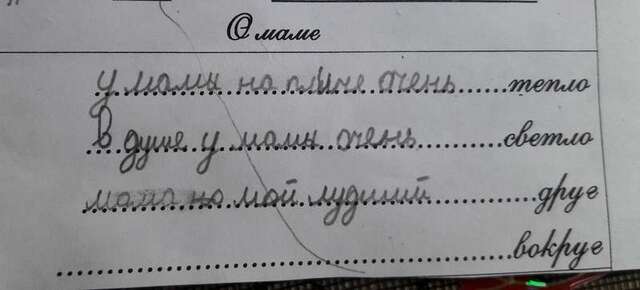 О маме
у мамы на плече очень тепло
В душе у мамы очень светло
мама мой лудший друг
вокруг